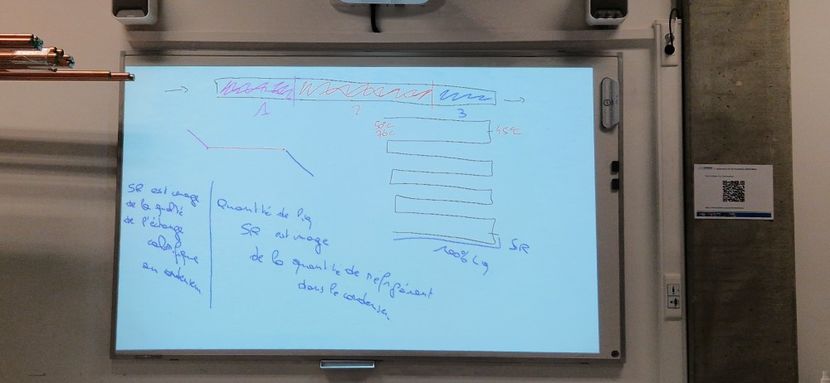 1 2 3
45°C
SR
100% Liq
SR est image
de la qualité
de l'échange
calorifique
au conden
Quantité de liq
SR est image
de la quantité de réfrigérant
dans le conden